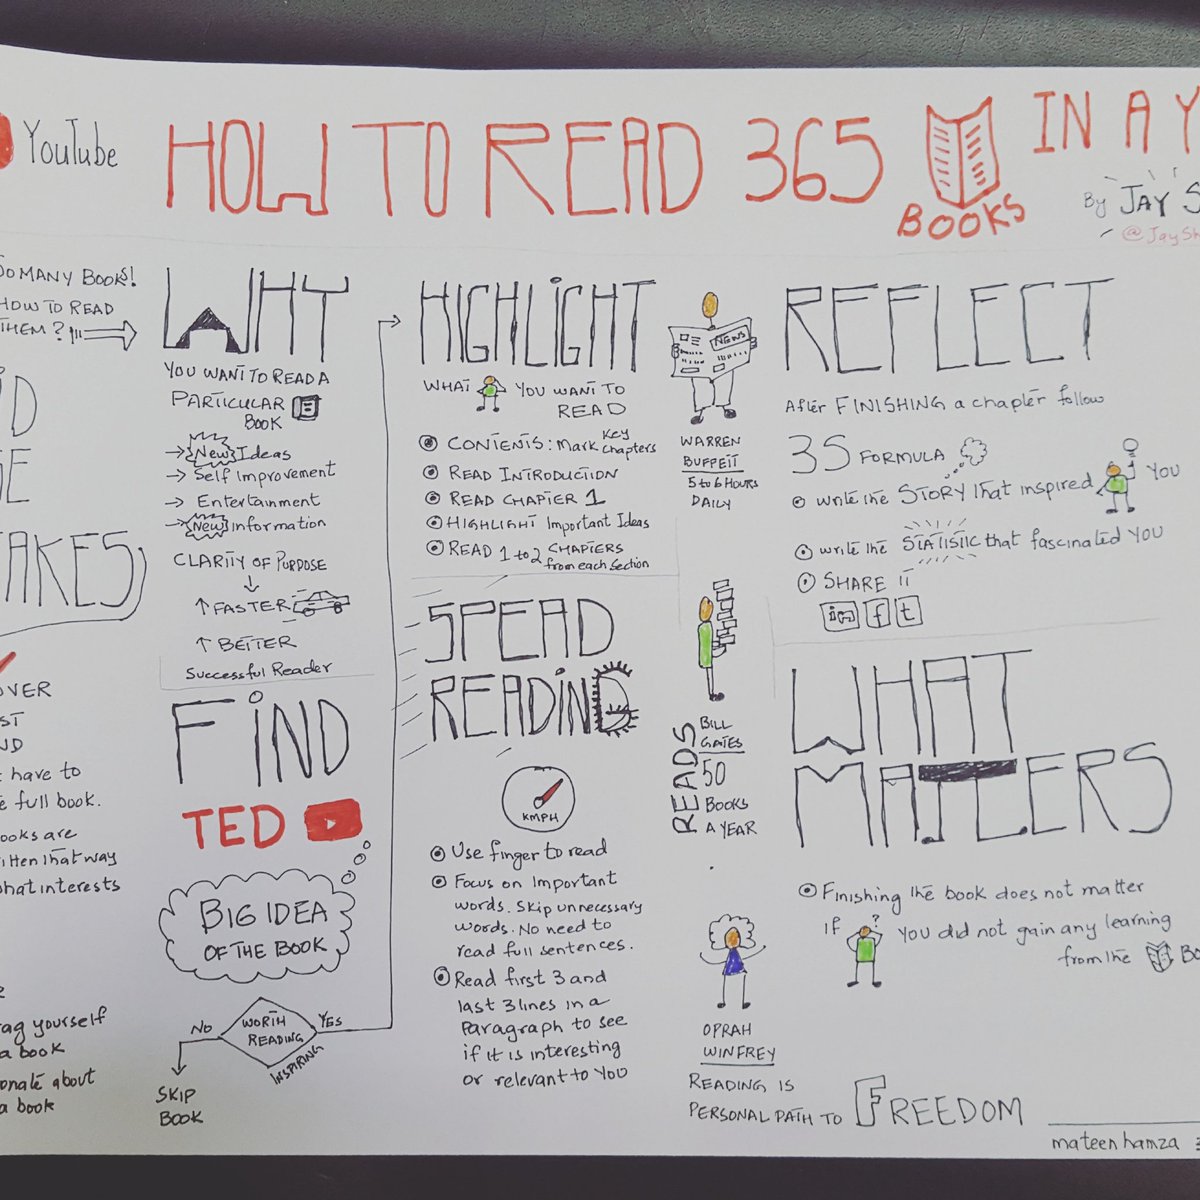 YouTube
HOW TO READ 365
BOOKS
IN A Y
By JAY S
@JaySh
SO MANY BOOKS!
HOW TO READ
THEM?
AKES
OVER
ST
ND
have to
full book.
ooks are
itten that way
what interests
ag yourself
a book
onate about
a book
WHY
YOU WANT TO READ A
PARTICULAR
BOOK
New Ideas
Self Improvement
Entertainment
New Information
CLARITY OF PURPOSE
FASTER
BETTER
Successful Reader
FIND
TED
BIG IDEA
OF THE BOOK
NO
WORTH
READING
YES
INSPIRING
SKIP
BOOK
HIGHLIGHT
WHAT YOU WANT TO
READ
CONTENTS: Mark Key
Chapters
READ INTRODUCTION
READ CHAPTER 1
HIGHLIGHT Important Ideas
READ 1 to 2 CHAPTERS
from each section
SPEAD
READING
KMPH
Use finger to read
Focus on Important
words. Skip unnecessary
words. No need to
read full sentences.
Read first 3 and
last 3 lines in a
Paragraph to see
if it is interesting
or relevant to YOU
NEWS
WARREN
BUFFETT
5 to 6 HOURS
DAILY
READS
BILL
GATES
50
BOOKS
A YEAR
OPRAH
WINFREY
READING IS
PERSONAL PATH TO FREEDOM
REFLECT
After FINISHING a chapter follow
3S FORMULA
write the STORY that inspired YOU
write the STATISTIC that fascinated YOU
SHARE IT
in f t
WHAT
MATTERS
Finishing the book does not matter
If YOU did not gain any learning
from the Bo
mateen hamza